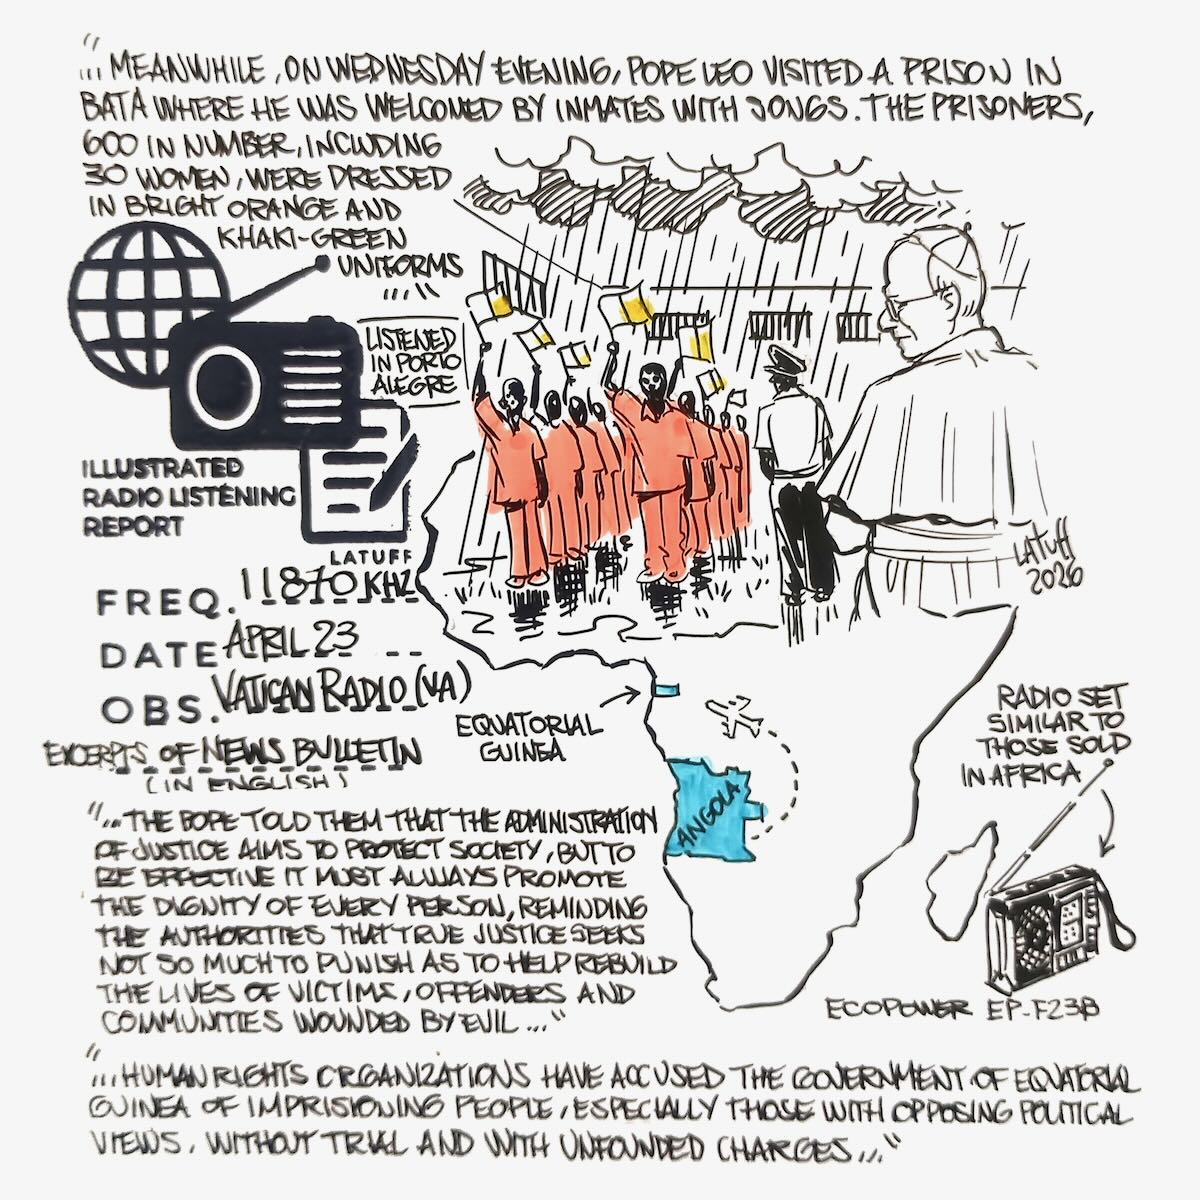 "... MEANWHILE, ON WEDNESDAY EVENING, POPE LEO VISITED A PRISON IN
BATA WHERE HE WAS WELCOMED BY INMATES WITH SONGS. THE PRISONERS,
600 IN NUMBER, INCLUDING
30 WOMEN, WERE DRESSED
IN BRIGHT ORANGE AND
KHAKI-GREEN
UNIFORMS
..."
LISTENED
IN PORTO
ALEGRE
ILLUSTRATED
RADIO LISTENING
REPORT
LATUFF
FREQ. 11870 KHZ
DATE APRIL 23
OBS. VATICAN RADIO (VA)
EXCERPTS OF NEWS BULLETIN
(IN ENGLISH)
LATUFF
2026
EQUATORIAL
GUINEA
ANGOLA
RADIO SET
SIMILAR TO
THOSE SOLD
IN AFRICA
ECOPOWER EP-F23B
"... THE POPE TOLD THEM THAT THE ADMINISTRATION
OF JUSTICE AIMS TO PROTECT SOCIETY, BUT TO
BE EFFECTIVE IT MUST ALWAYS PROMOTE
THE DIGNITY OF EVERY PERSON, REMINDING
THE AUTHORITIES THAT TRUE JUSTICE SEEKS
NOT SO MUCH TO PUNISH AS TO HELP REBUILD
THE LIVES OF VICTIMS, OFFENDERS AND
COMMUNITIES WOUNDED BY EVIL..."
"... HUMAN RIGHTS ORGANIZATIONS HAVE ACCUSED THE GOVERNMENT OF EQUATORIAL
GUINEA OF IMPRISIONING PEOPLE, ESPECIALLY THOSE WITH OPPOSING POLITICAL
VIEWS, WITHOUT TRIAL AND WITH UNFOUNDED CHARGES..."